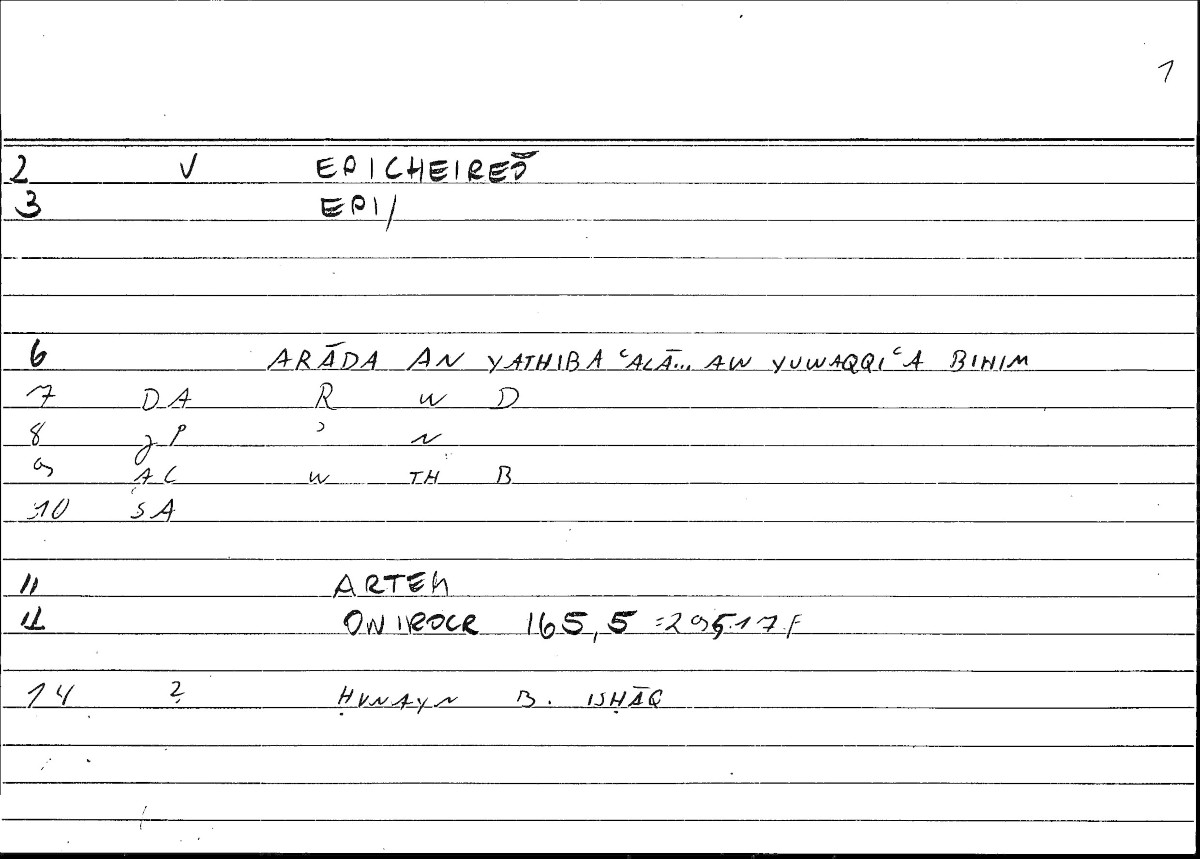 1
2 V EPICHEIREŌ
3 EPI/
6 ARĀDA AN YATHIBA ʿALĀ... AW YUWAQQIʿA BIHIM
7 DA R W D
8 JP ʾ N
9 AC W TH B
10 SA
11 ARTEM
12 ONIROCR 165,5 =295.17f
14 2 ḤUNAYN B. ISḤĀQ